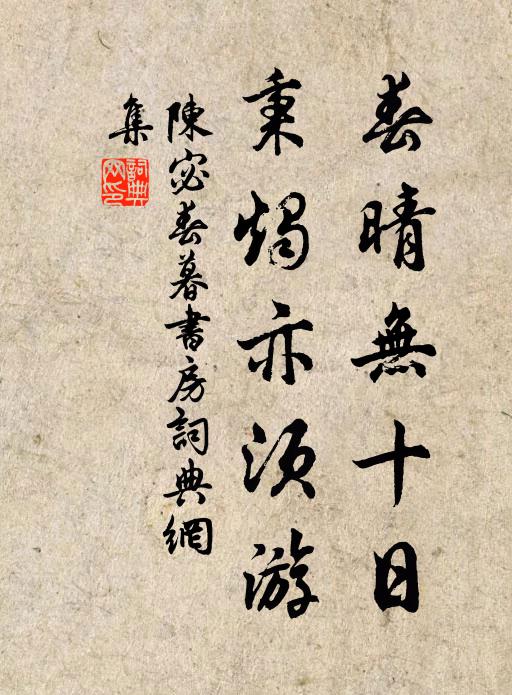 春晴無十日
秉燭亦須游
陳宓春暮書房詞典網
集
詞典
網印